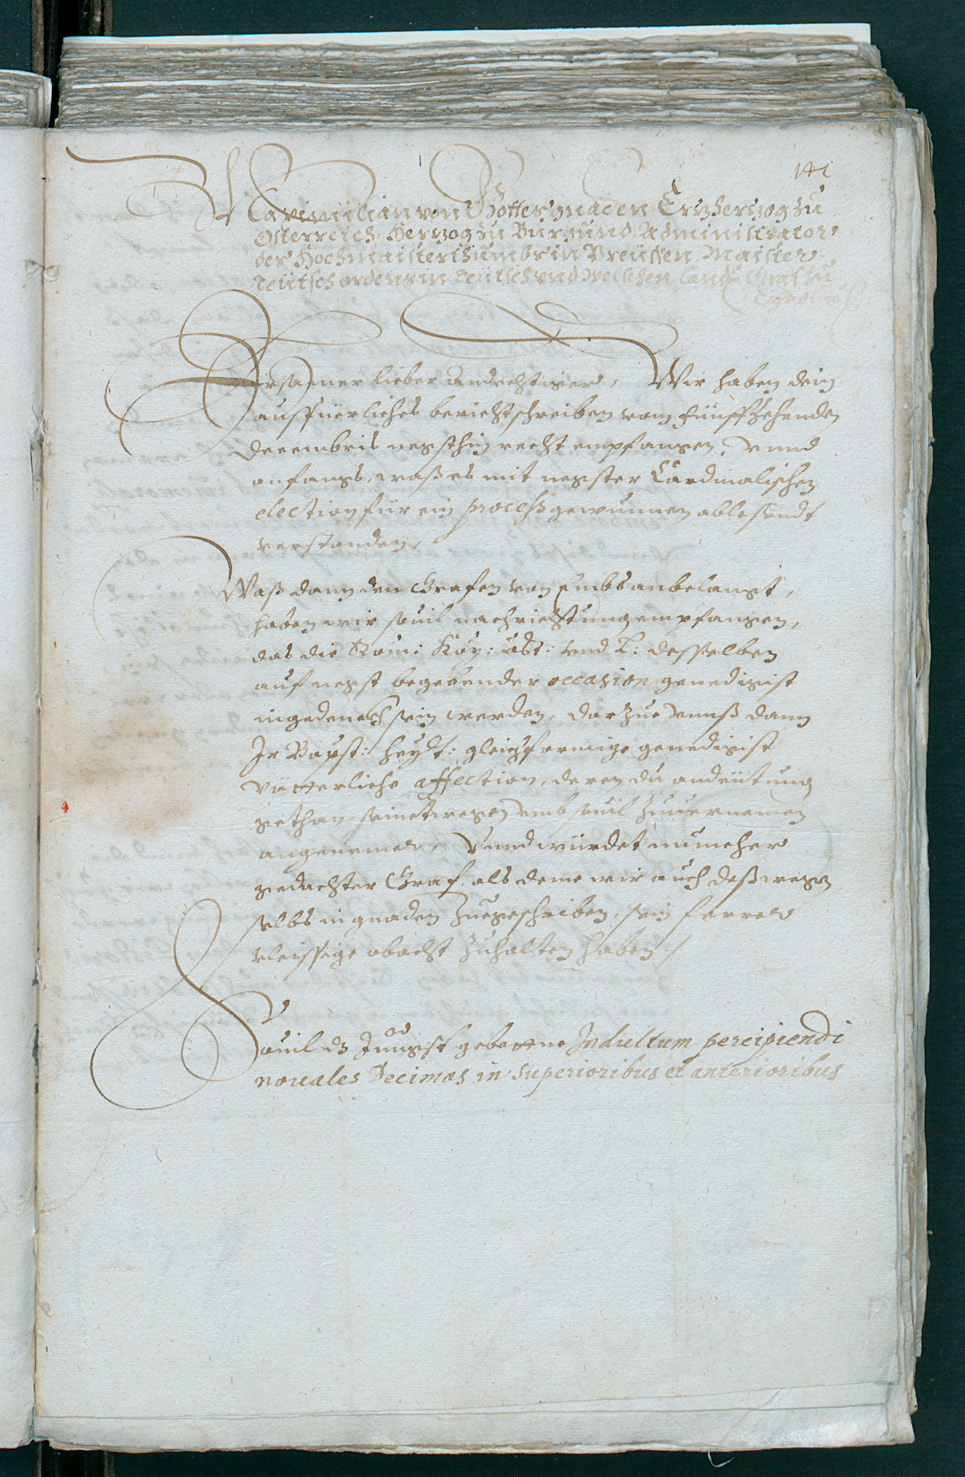 141
Maximilian von Gottes gnaden Ertzhertzog zu
Osterreich Hertzog zu Burgund Administrator
der Hochmaisterthumbs in Preüssen, Maister
Teütsch ordens in Teütsch und Welschen landen Graf zu
Tyrol
Ersamer lieber andechtiger, Wir haben dein
ausfüerliches berichtschreiben vom fünffzehenden
Decembris negsthin recht empfangen, vnnd
anfangs, waß es mit negster Cardinalischen
election für ein process gewunnen ablesendt
verstanden,
Waß dann den Grafen von Embs anbelangt,
haben wir souil nachrichtung empfangen,
das die Röm: Kay: Mt: vnd L: desselben
auf negst begebender occasion genedigist
ingedenckh sein werden, darzue dann
Ir Bäpst: Heylt: gleichformige genedigist
vätterliche affection, deren du andeütung
gethan, seinetwegen vmb souil zuuernemen
angenemer, Vnnd würdet nunmehr
gedachter Graf, als deme wir auch deßwegen
selbs in gnaden zuegeschriben, sein ferrer
vleissige obacht zuhalten haben /
Souil dz Jungst gebettne Indultum percipiendi
nouales Decimas in superioribus et anterioribus